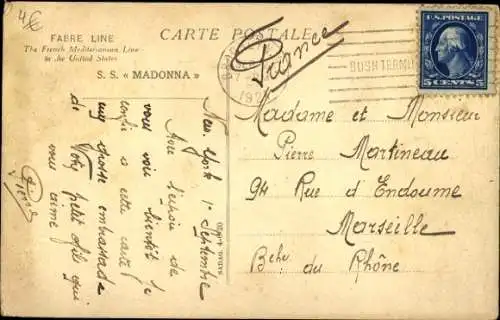 4€
FABRE LINE
The French Mediterranean Line
to the United States
S. S. « MADONNA »
CARTE POSTALE
France
BUSH TERMI
U.S. POSTAGE
5 CENTS 5
New York 1e Septembre
Avec l'espoir de
vous voir bientôt je
confie à cette carte
ma grosse embrassade
de Votre petit fils qui
vous aime
Pierre
Madame et Monsieur
Pierre Martineau
94 Rue d'Endoume
Marseille
Bches du Rhône